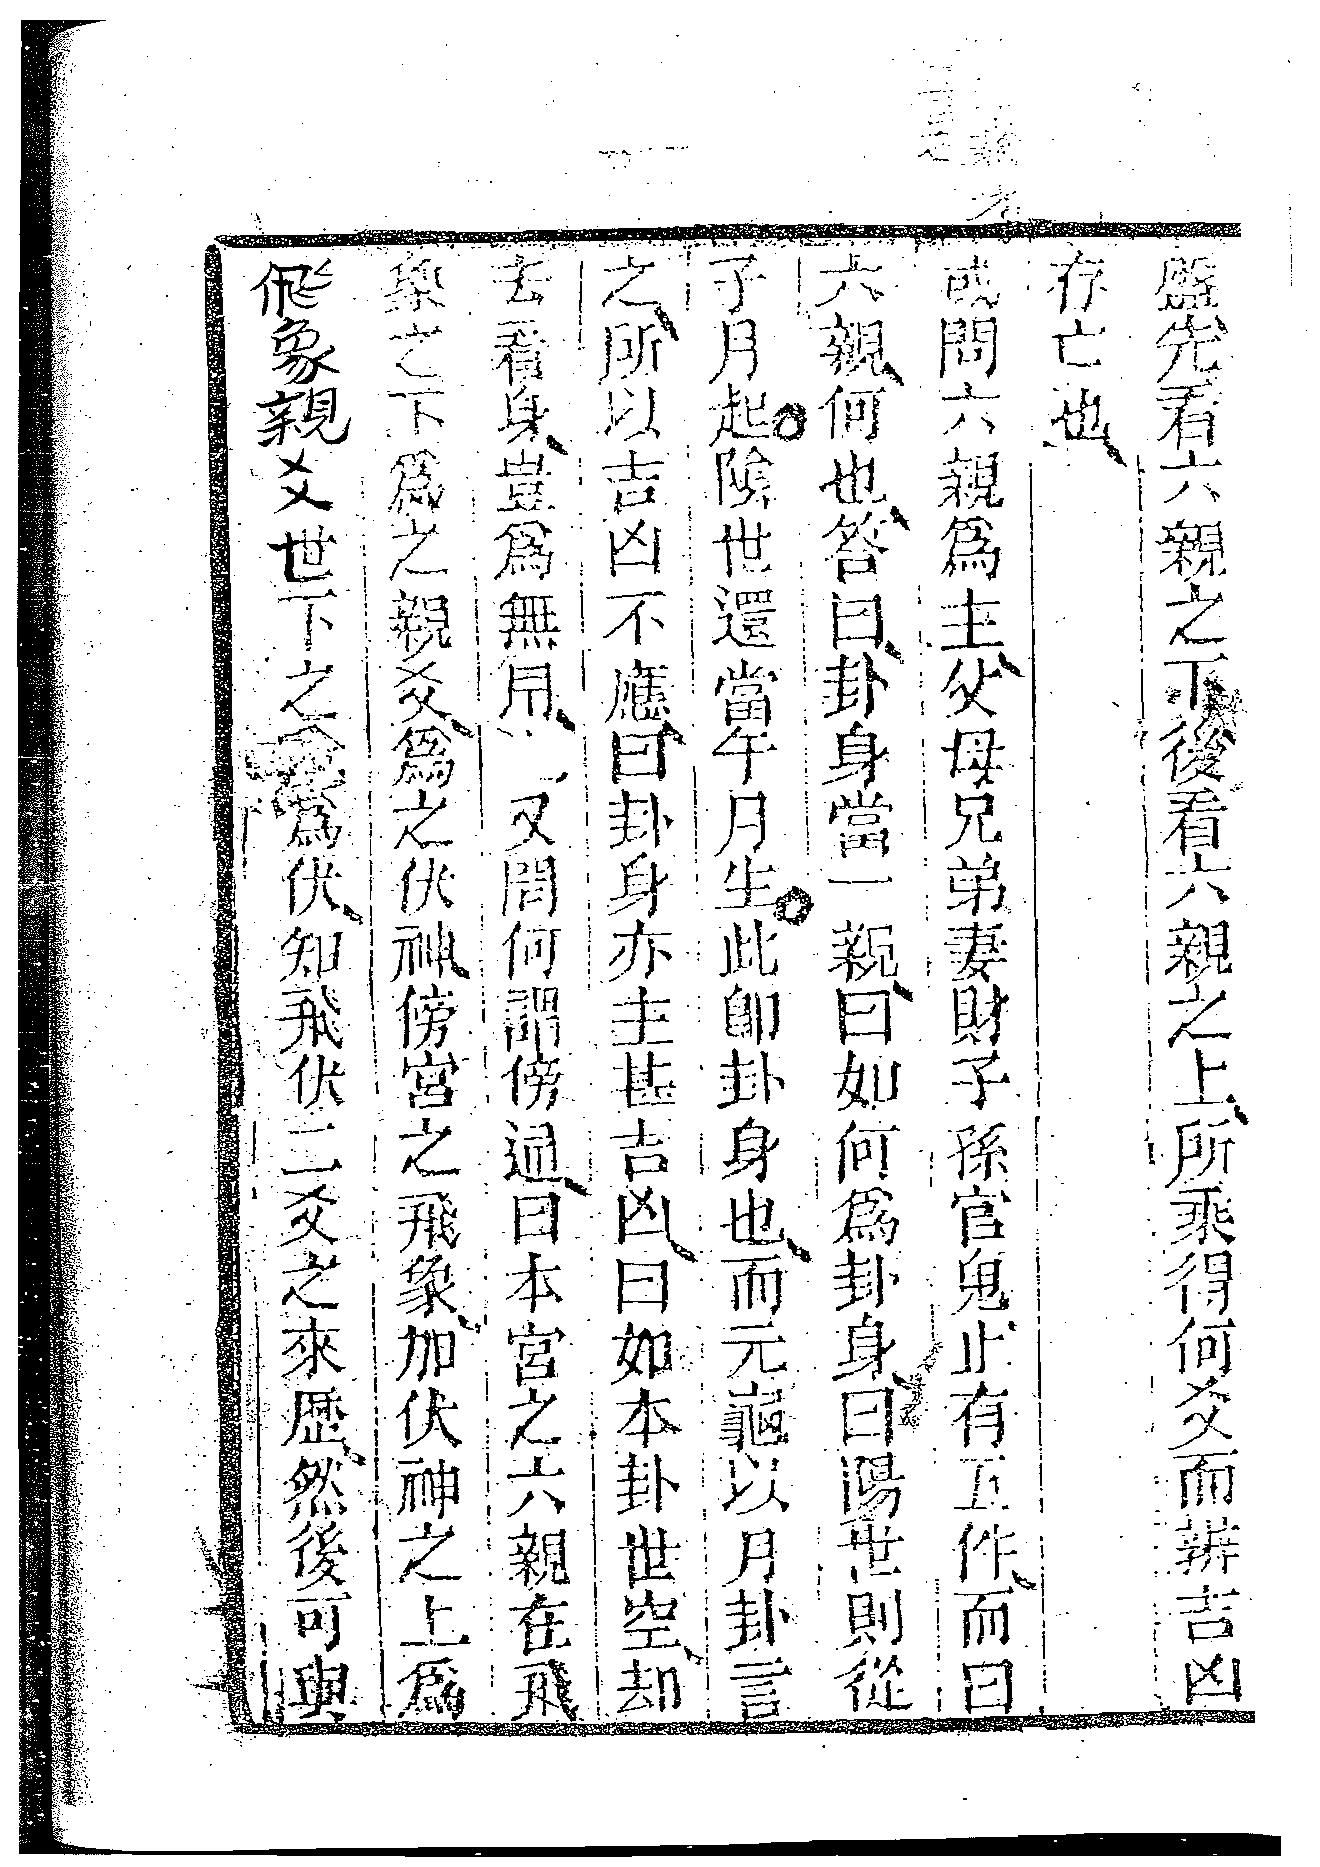 盤先看六親之下後看六親之上所乘得何爻而辨吉凶
存亡也
或問六親爲主父母兄弟妻財子孫官鬼止有五件而曰
六親何也答曰卦身當一親曰如何爲卦身曰陽世則從
子月起陰世還當午月生此卽卦身也而元龜以月卦言
之所以吉凶不應曰卦身亦主甚吉凶曰如本卦世空却
去看身豈爲無用又問何謂傍通曰本宮之六親在飛
象之下爲之親爻爲之伏神傍宮之飛象加伏神之上爲
飛象親爻世下之爲伏知飛伏二爻之來歷然後可與